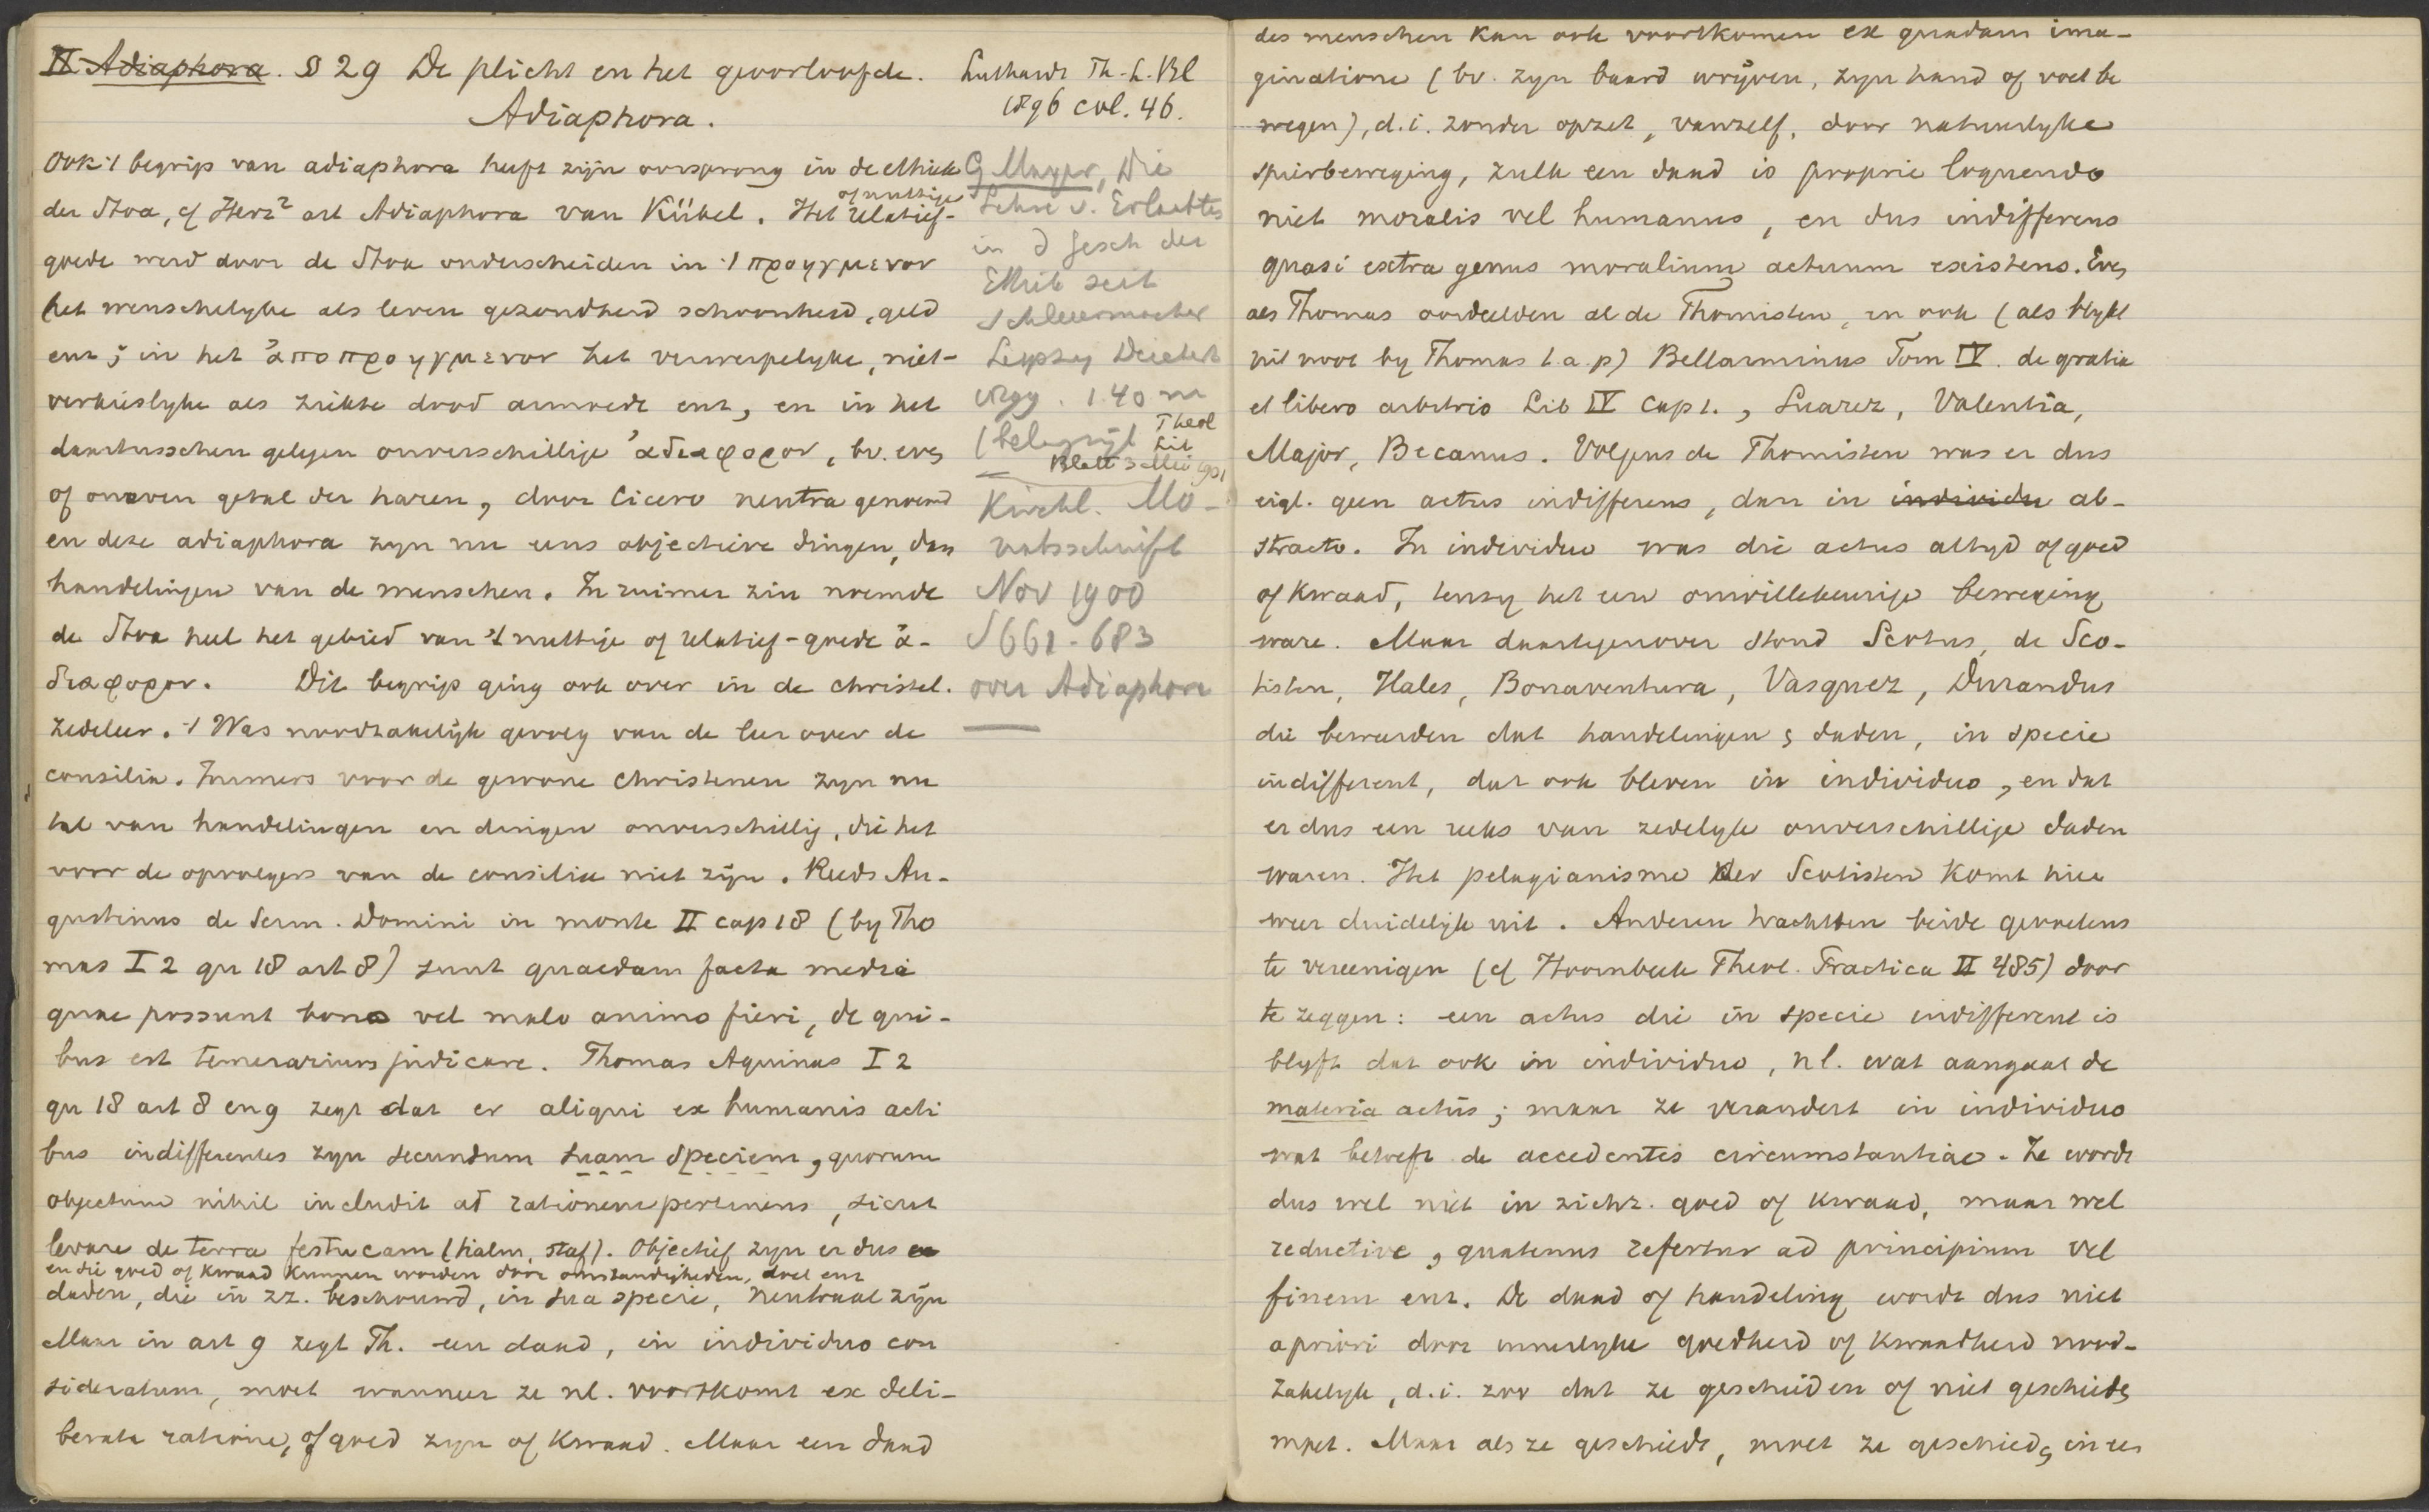 II Adiaphora. § 29 De plicht en het geoorloofde.
Adiaphora.
Ook 't begrip van adiaphora heeft zijn oorsprong in de ethiek
der Stoa, cf Herz² art Adiaphora van Kübel. Het relatief-
of nuttige
goede werd door de Stoa onderscheiden in 't προηγμενον
het wenschelyke als leven gezondheid schoonheid, geld
enz; in het ἀποπροηγμενον het verwerpelyke, niet-
verkieslyke als ziekte dood armoede enz, en in het
daartusschen gelegen onverschillige ἀδιαφορον, bv. even
of oneven getal der haren, door Cicero neutra genoemd
en deze adiaphora zyn nu eens objectieve dingen, dan
handelingen van de menschen. In ruimer zin noemde
de Stoa heel het gebied van 't nuttige of relatief-goede ἀ-
διαφορον. Dit begrip ging ook over in de christel.
zedeleer. 't Was noodzakelijk gevolg van de leer over de
consilia. Immers voor de gewone christenen zyn nu
tal van handelingen en dingen onverschillig, die het
voor de opvolgers van de consilia niet zijn. Reeds Au-
gustinus de Serm. Domini in monte II cap 18 (by Tho
mas I 2 qu 18 art 8) sunt quaedam facta media
quae possunt bono vel malo animo fieri, de qui-
bus est temerarium judicare. Thomas Aquinas I 2
qu 18 art 8 en 9 zegt dat er aliqui ex humanis acti
bus indifferentes zyn secundum suam speciem, quorum
objectum nihil includit ad rationem pertinens, sicut
levare de terra festucam (halm, staf). Objectief zyn er dus
en die goed of kwaad kunnen worden door omstandigheden, doel enz
daden, die in zz. beschouwd, in sua specie, neutraal zijn
Maar in art 9 zegt Th. een daad, in individuo con
sideratum, moet wanneer ze nl. voortkomt ex deli-
berata ratione, of goed zyn of kwaad. Maar een daad
Luthardt Th. L. Bl
1896 col. 46.
G Mayer, Die
Lehre v. Erlaubten
in d Gesch der
Ethik seit
Schleiermacher
Leipzig Deichert
1899. 1.40 m
(belangrijk Theol
Lit
Blatt 3 Mei 1901
Kirchl. Mo-
natsschrift
Nov 1900
S 661-683
over Adiaphora
des menschen kan ook voortkomen ex quadam ima-
ginatione (bv. zyn baard wrijven, zyn hand of voet be
wegen), d.i. zonder opzet, vanzelf, door natuurlyke
spierbeweging, zulk een daad is proprie loquendo
niet moralis vel humanus, en dus indifferens
quasi extra genus moralium actuum existens. Even
als Thomas oordeelden al de Thomisten, en ook (als blykt
uit noot by Thomas t.a.p) Bellarminus Tom IV. de gratia
et libero arbitrio Lib IV cap 1., Suarez, Valentia,
Major, Becanus. Volgens de Thomisten was er dus
eigl. geen actus indifferens, dan in individu ab-
stracto. In individuo was die actus altyd of goed
of kwaad, tenzy het een onwillekeurige beweging
ware. Maar daartegenover stond Scotus, de Sco-
tisten, Hales, Bonaventura, Vasquez, Durandus
die beweerden dat handelingen & daden, in specie
indifferent, dat ook bleven in individuo, en dat
er dus een reeks van zedelyk onverschillige daden
waren. Het pelagianisme der Scotisten komt hier
weer duidelyk uit. Anderen trachtten beide gevoelens
te vereenigen (cf Hoornbeek Theol. Practica II 485) door
te zeggen: een actus die in specie indifferent is
blyft dat ook in individuo, nl. wat aangaat de
materia actûs; maar ze verandert in individuo
wat betreft de accedentes circumstantiae. Ze wordt
dus wel niet in zichz. goed of kwaad, maar wel
reductive, quatenus refertur ad principium vel
finem enz. De daad of handeling wordt dus niet
apriori door innerlyke goedheid of kwaadheid nood-
zakelyk, d.i. zoo dat ze geschieden of niet geschieden
moet. Maar als ze geschiedt, moet ze geschieden in een